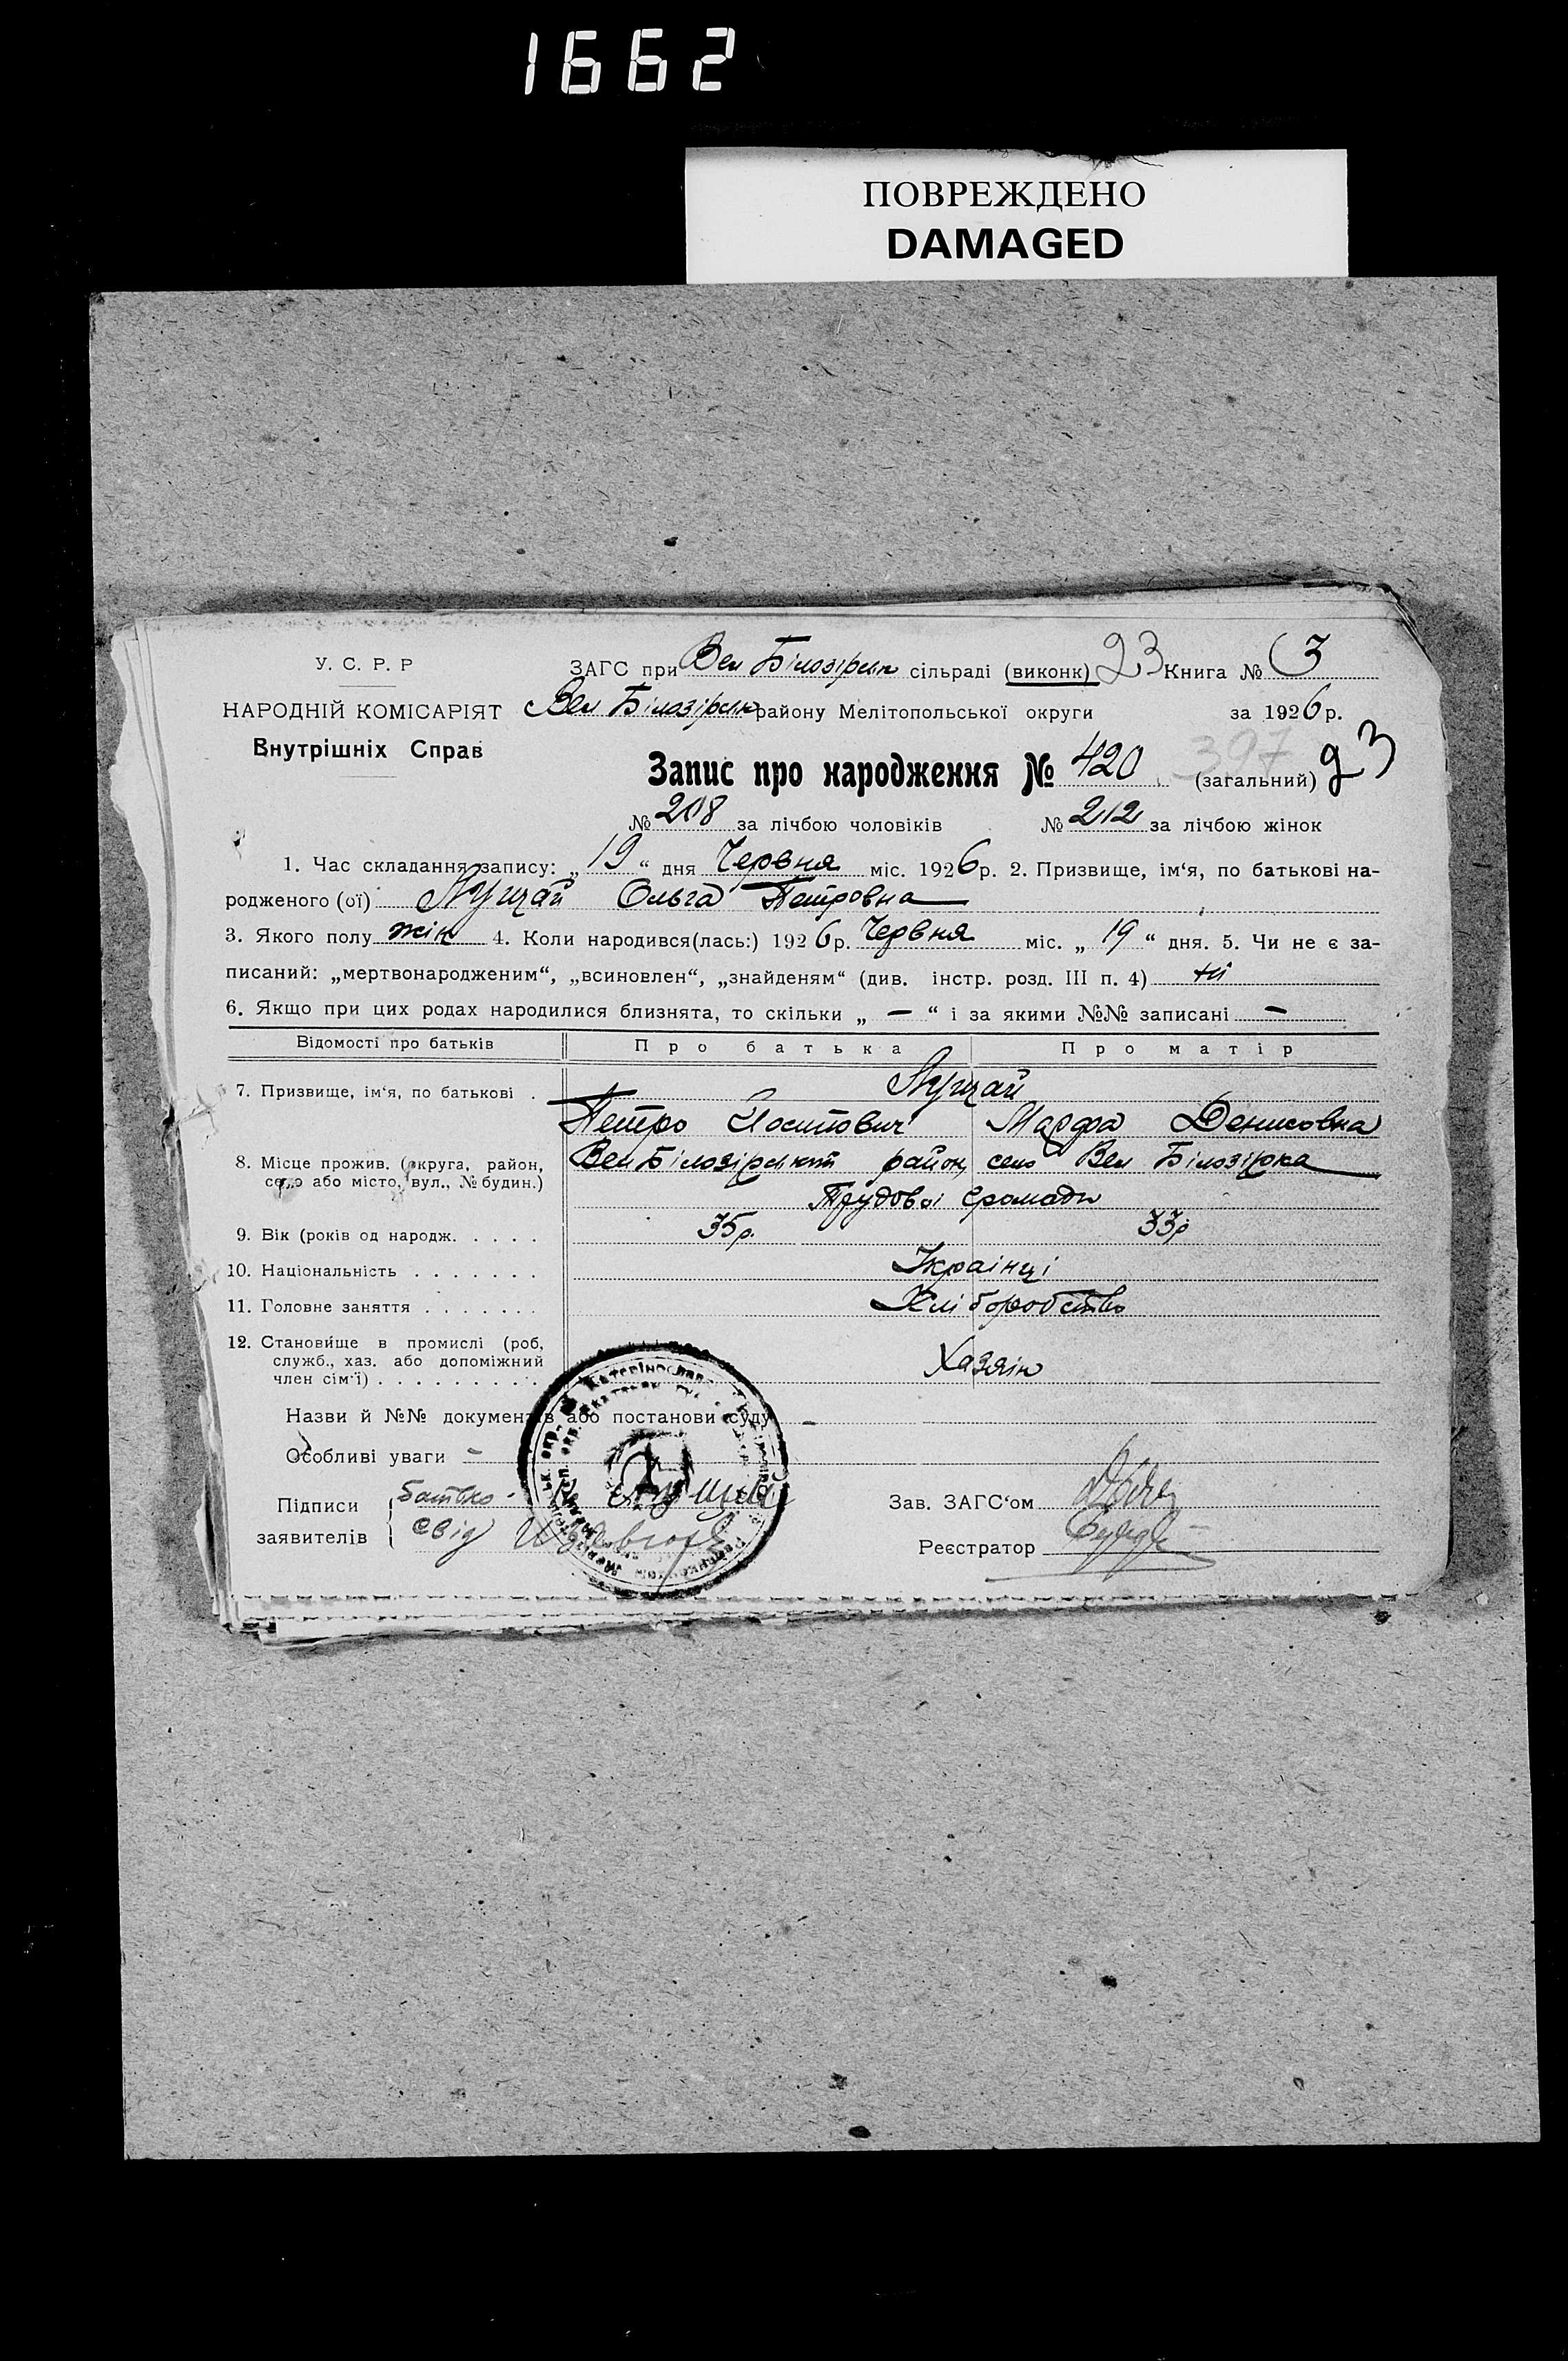 1662
ПОВРЕЖДЕНО
DAMAGED
У. С. Р. Р
ЗАГС при Вел Білозірськ сільраді (виконк) 23 Книга № 3
НАРОДНІЙ КОМІСАРІЯТ Вел Білозірськ району Мелітопольської округи за 1926 р.
Внутрішніх Справ
397 23
Запис про народження № 420 (загальний)
№ 208 за лічбою чоловіків № 212 за лічбою жінок
1. Час складання запису: „ 19 “ дня Червня міс. 1926 р. 2. Призвище, ім‘я, по батькові на-
родженого (ої) Лущай Ольга Петровна
3. Якого полу жін 4. Коли народився(лась:) 1926 р. Червня міс. „ 19 “ дня. 5. Чи не є за-
писаний: „мертвонародженим“, „всиновлен“, „знайденям“ (див. інстр. розд. III п. 4) ні
6. Якщо при цих родах народилися близнята, то скільки „ — “ і за якими №№ записані —
Відомості про батьків Про батька Про матір
7. Призвище, ім‘я, по батькові . Лущай
Петро Йоситович Марфа Денисовна
8. Місце прожив. (округа, район, Вел Білозірський район село Вел Білозірка
село або місто, вул., № будин.)
Трудовоі громади
9. Вік (років од народж. . . . . 35 р. 33 р
10. Національність . . . . . . . Украінці
11. Головне заняття . . . . . . . Хліборобство
12. Становище в промислі (роб,
служб., хаз. або допоміжний Хазяін
член сім‘ї) . . . . . . . . . .
Назви й №№ документів або постанови суду —
Особливі уваги —
Підписи батько - Лущай
заявителів свід
Зав. ЗАГС‘ом
Реєстратор